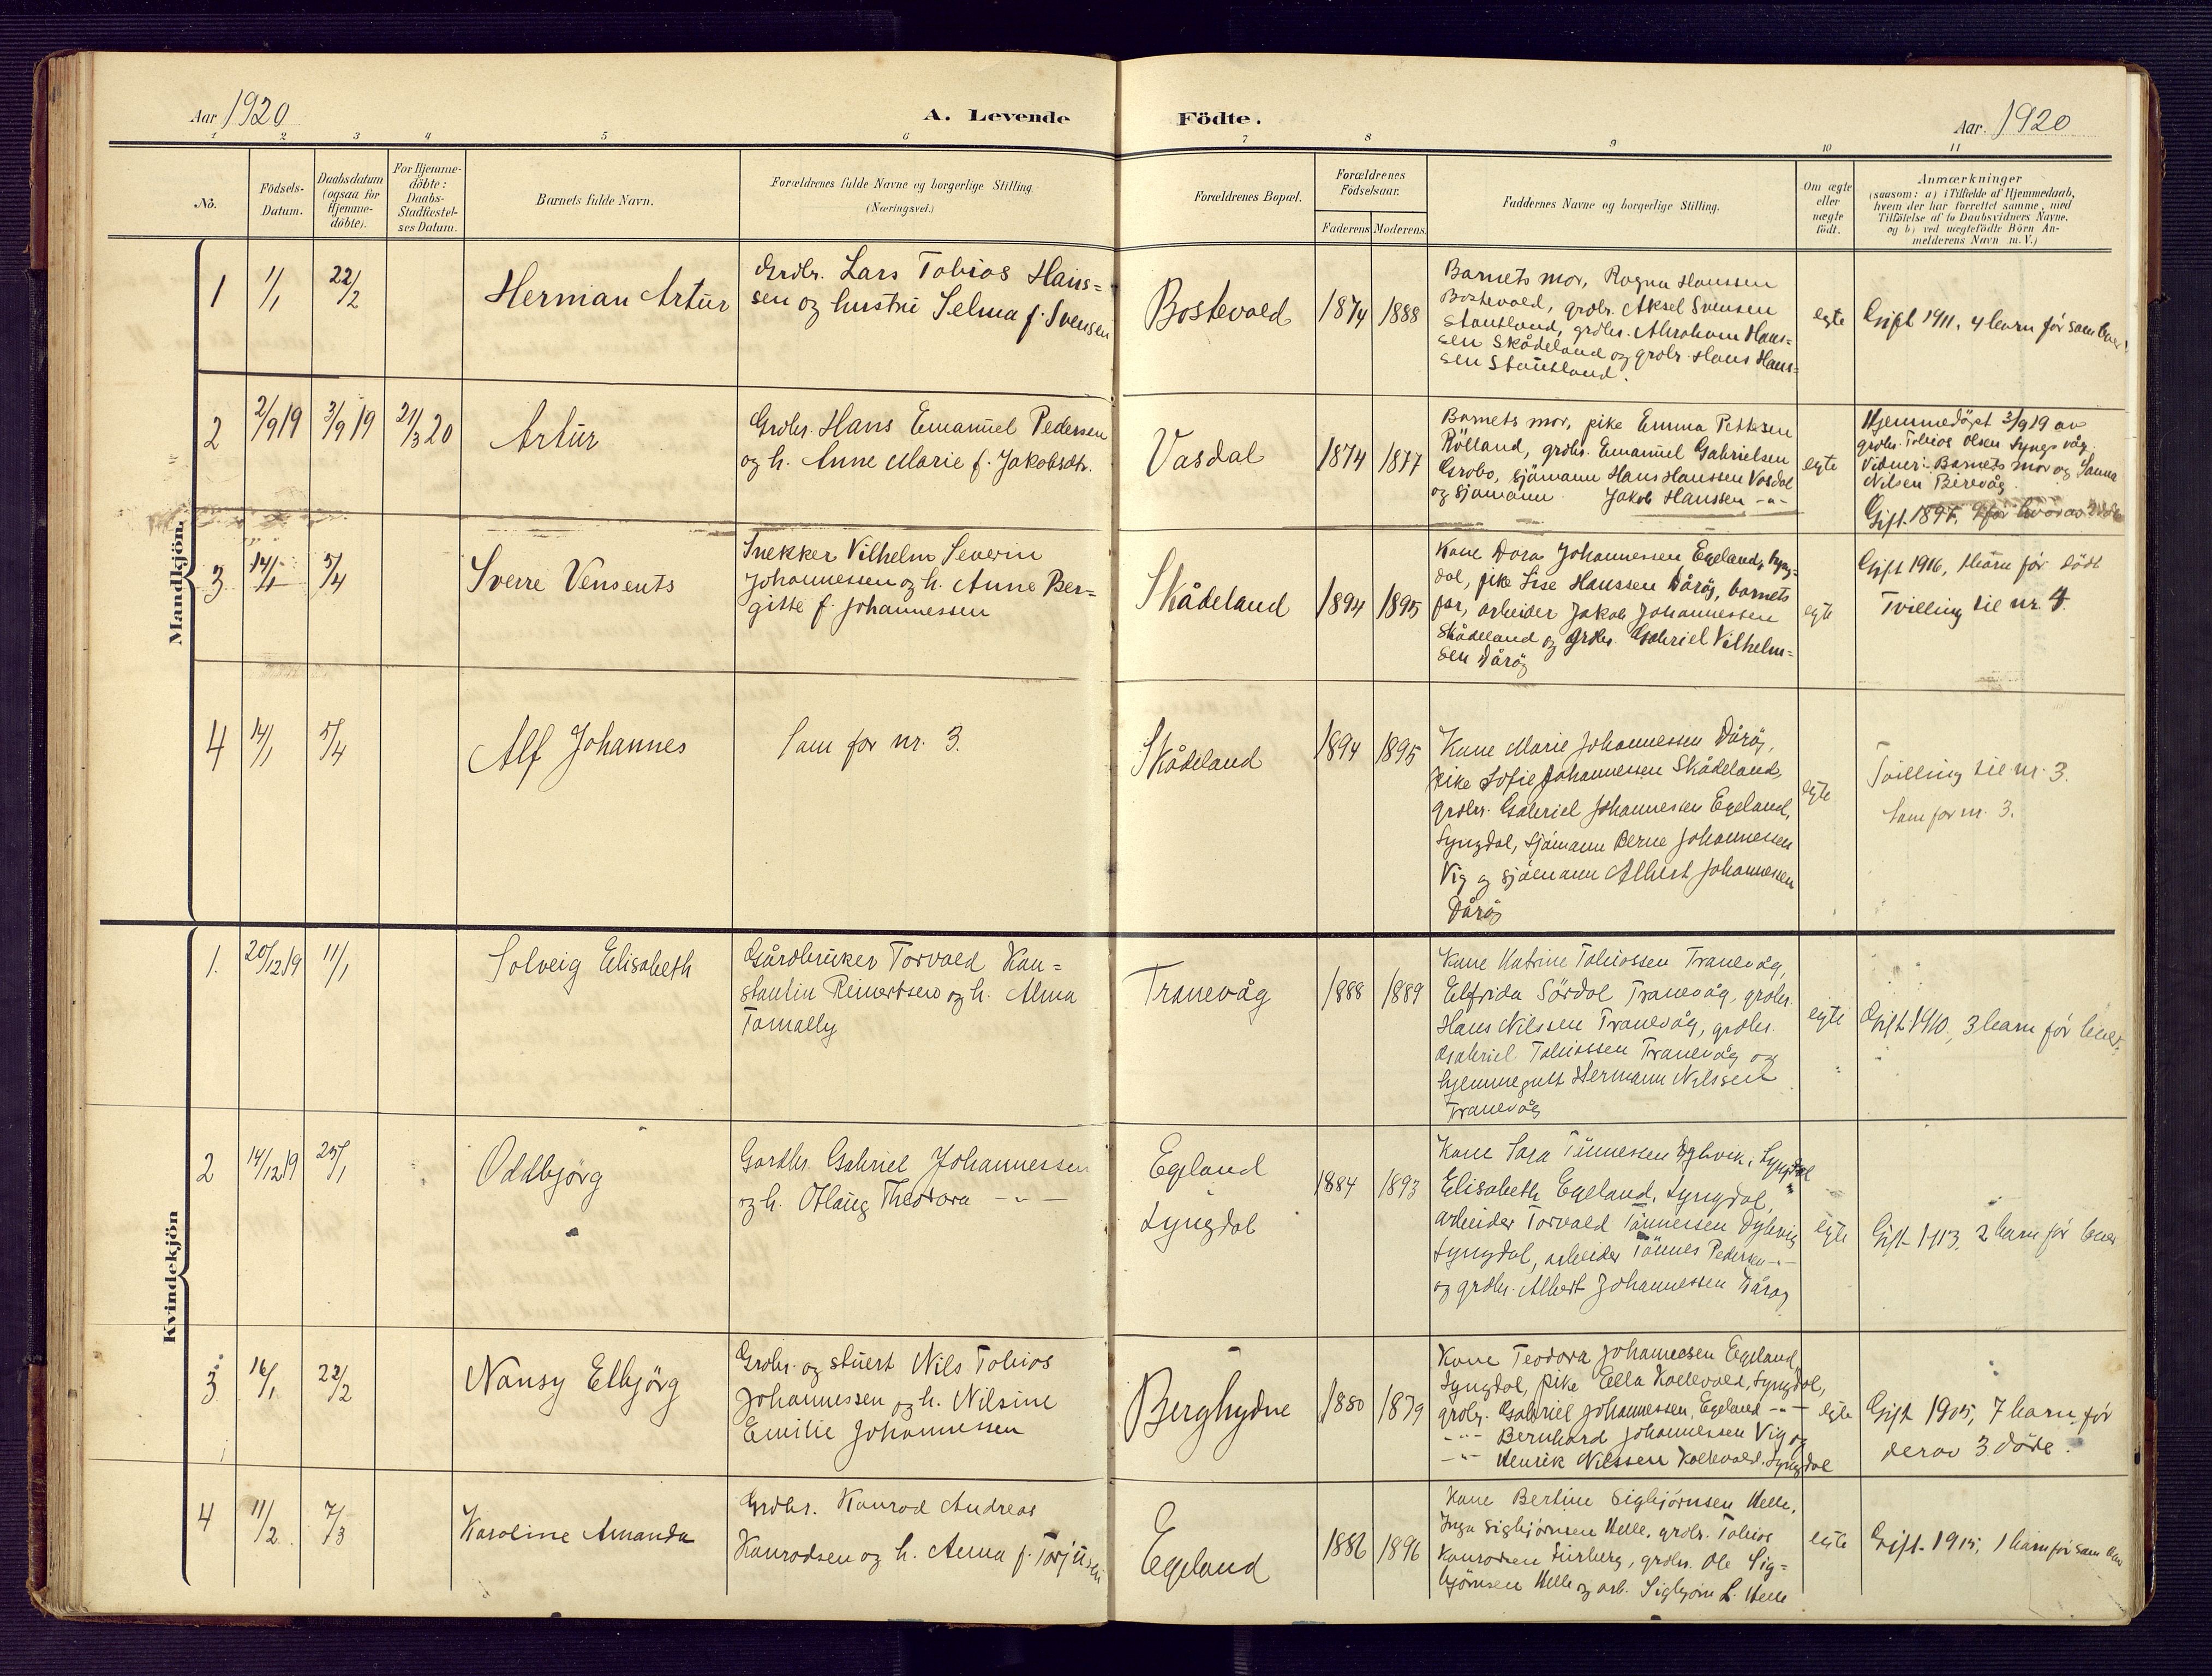 Aar 1920
A. Levende
Födte.
Aar. 1920
1 2 3 4 5 6 7 8 9 10 11
No.
Födsels-
Datum.
Daabsdatum
(ogsaa for
Hjemme-
döbte).
For Hjemme-
döbte:
Daabs-
Stadfæstel-
ses Datum.
Barnets fulde Navn.
Forældrenes fulde Navne og borgerlige Stilling.
(Næringsvei.)
Forældrenes Bopæl.
Forældrenes
Födselsaar.
Faderens Moderens
Faddernes Navne og borgerlige Stilling.
Om ægte
eller
uægte
födt.
Anmærkninger
(saasom: a) i Tilfælde af Hjemmedaab,
hvem der har forrettet samme, med
Tilföielse af to Daabsvidners Navne,
og b) ved uægtefödte Börn An-
melderens Navn m. V.)
Mandkjön
1
1/1
22/2
Herman Artur
Grdbr. Lars Tobias Hans=
sen og hustru Selma f. Svensen
Bostevold
1874
1888
Barnets mor, Ragna Hanssen
Bostevold, grdbr. Aksel Svensen
Stautland, grdbr. Abraham Hans=
sen Skådeland og grdbr. Hans Hans=
sen Stautland.
egte
Gift 1911. 4 barn för som lever
2
2/9 19
3/9 19
21/3 20
Artur
Grdbr. Hans Emanuel Pedersen
og h. Anne Marie f. Jakobsdtr.
Vasdal
1874
1877
Barnets mor, pike Emma Pettersen
Rölland, grdbr. Emanuel Gabrielsen
Grobo, sjömann Hans Hanssen Vasdal
og sjömann Jakob Hanssen -"-
egte
Hjemmedöpt 3/9 19 av
grdbr. Tobias Olsen Lyngsvåg.
Vidner: Barnets mor og Sanna
Nilsen Birevåg.
Gift 1897.
3
14/1
5/4
Sverre Vensents
Snekker Vilhelm Severin
Johannessen og h. Anne Ber=
gitte f. Johannessen
Skådeland
1894
1895
Kone Dora Johannessen Egeland, Lyng=
dal, pike Lise Hanssen Dårög, barnets
far, arbeider Jakob Johannessen
Skådeland og grdbr. Gabriel Vilhelm=
sen Dårög
egte
Gift 1916, 1 barn för dödt
Tvilling til nr. 4.
4
14/1
5/4
Alf Johannes
Som for nr. 3.
Skådeland
1894
1895
Kone Marie Johannessen Dårög,
pike Sofie Johannessen Skådeland,
grdbr. Gabriel Johannessen Egeland,
Lyngdal, Sjömann Berne Johannessen
Vig og sjömann Albert Johannessen
Dårög
egte
Tvilling til nr. 3.
Som for nr. 3.
Kvindekjön
1.
20/12 19
11/1
Solveig Elisabeth
Gårdbruker Torvald Kon=
stantin Reinertsen og h. Alma
Tomally
Tranevåg
1888
1889
Kone Katrine Tobiassen Tranevåg,
Elfrida Sördal Tranevåg, grdbr.
Hans Nilssen Tranevåg, grdbr.
Gabriel Tobiassen Tranevåg og
hjemmegutt Hermann Nilssen
Tranevåg
egte
Gift 1910, 3 barn för lever.
2
14/12 19
25/1
Oddbjörg
Gardbr. Gabriel Johannessen
og h. Otlaug Theodora -"-
Egeland
Lyngdal
1884
1893
Kone Sara Tönnessen Dybvik, Lyngdal
Elisabeth Egeland, Lyngdal,
arbeider Torvald Tönnessen Dybvig
Lyngdal, arbeider Tönnes Pedersen -"-
og grdbr. Albert Johannessen Dårög
egte
Gift 1913, 2 barn för lever
3
16/1
22/2
Nansy Elbjörg
Grdbr. og stuert Nils Tobias
Johannessen og h. Nilsine
Emilie Johannessen
Berghydne
1880
1879
Kone Teodora Johannessen Egeland,
Lyngdal, pike Ella Kollevold, Lyngdal,
grdbr. Gabriel Johannessen, Egeland -"-
-"- Bernhard Johannessen Vig og
-"- Henrik Nilssen Kollevold, Lyngdal
egte
Gift 1905, 7 barn för
derav 3 döde.
4
11/2
7/3
Karoline Amanda
Grdbr. Konrad Andreas
Konradsen og h. Anna f. Torjusen
Egeland
1886
1896
Kone Bertine Sigbjörnsen Helle,
Inga Sigbjörnsen Helle, grdbr. Tobias
Konradsen, grdbr. Ole Sig=
björnsen Helle og arb. Sigbjörn L. Helle
egte
Gift 1915, 1 barn för som lever